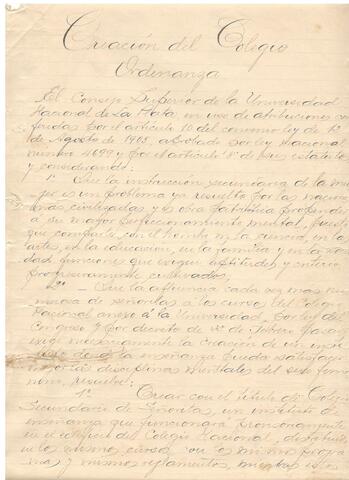 Creación del Colegio
Ordenanza
El Consejo Superior de la Universidad
Nacional de La Plata, en uso de atribuciones con
feridas por el artículo 10 del convenio ley de 12
de Agosto de 1905 aprobado por ley nacional
número 4699 y por el artículo 8 de sus estatutos
y considerando:
1º Que la instrucción secundaria de la mu
jer es un problema ya resuelto por las naciones
más civilizadas y es obra patriótica propender
á su mayor perfeccionamiento mental, puesto
que comparte con el hombre en la ciencia, en las
artes, en la educación, en la familia y en la so
ciedad funciones que exigen aptitudes y criterio
propiamente cultivados.
2º - Que la afluencia cada vez más nu
merosa de señoritas á los cursos del Colegio
Nacional anexo á la Universidad, por ley del
Congreso y por decreto de de Febrero pasado
exige necesariamente la creación de un ins
donde la enseñanza pueda satisfacer
disciplinas mentales del sexo feme
nino, resuelve:
1º Crear con el título de Colegio
Secundario de Señoritas, un instituto de
enseñanza que funcionará provisoriamente
en el edificio del Colegio Nacional,
en los mismos cursos, con los mismos progra
mas y mismos reglamentos, mientras estos